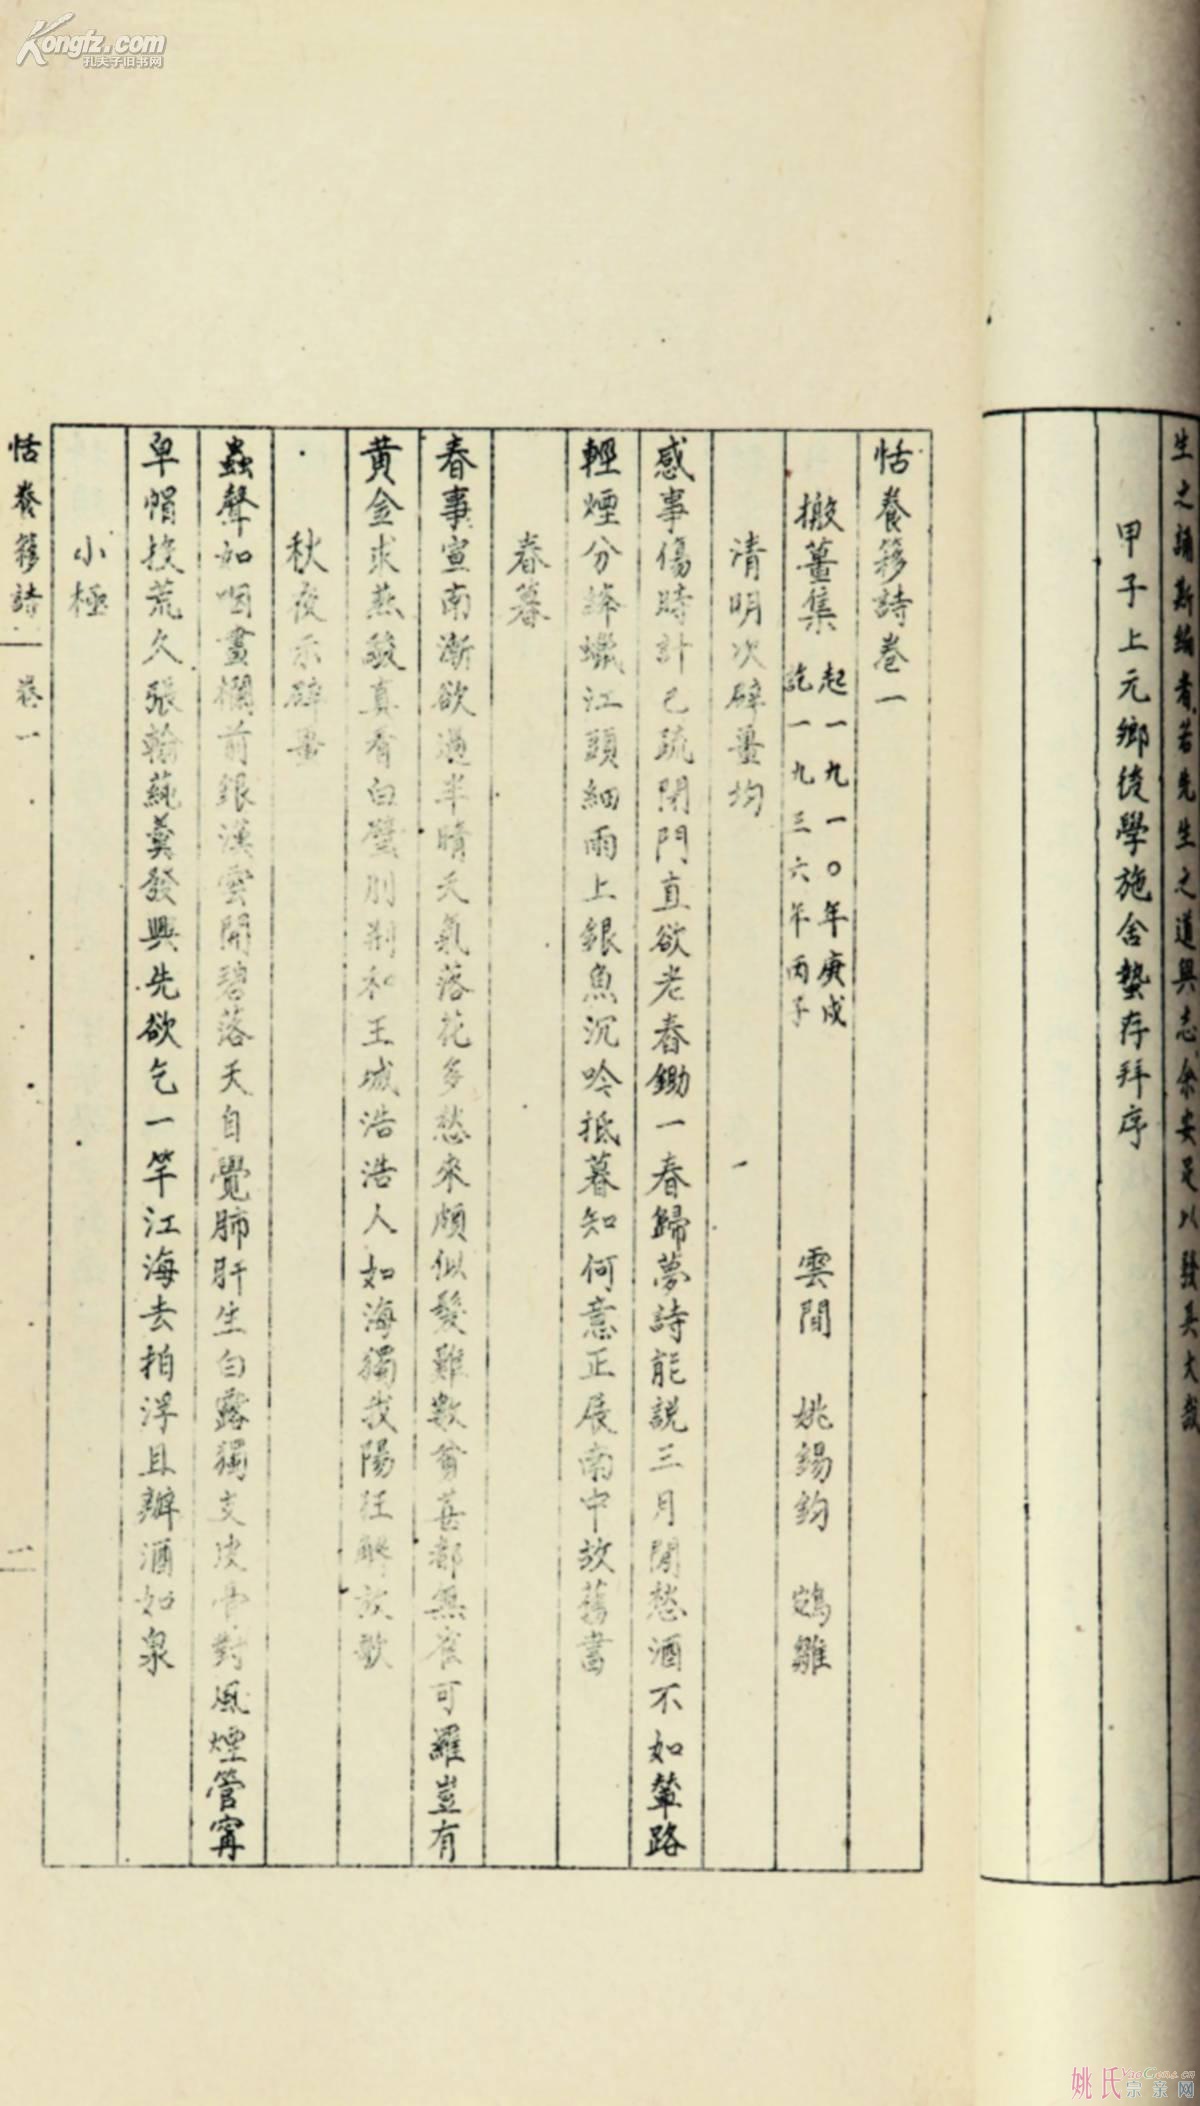 Kongfz.com
孔夫子旧书网
生之誦斯編者若先生之道與志余安足以發其大哉
甲子上元鄉後學施舍蟄存拜序
恬養簃詩卷一
搬薑集 起一九一〇年庚戌
訖一九三六年丙子
雲間 姚錫鈞 鵷雛
清明次檗畺均
感事傷時計已疏閉門直欲老春鋤一春歸夢詩能說三月閒愁酒不如輦路
輕煙分絳蠟江頭細雨上銀魚沉吟抵暮知何意正展南中故舊書
春暮
春事宣南漸欲過半晴天氣落花多愁來頗似髮難數貧甚都無雀可羅豈有
黃金求燕駿真看白璧刖荆和王城浩浩人如海獨我陽狂解放歌
秋夜示檗畺
蟲聲如咽畫欄前銀漢雲開碧落天自覺肺肝生白露獨支皮骨對風煙管寗
皁帽投荒久張翰蒓羹發興先欲乞一竿江海去拍浮且辦酒如泉
小極
恬養簃詩 卷一 一
姚氏宗亲网
YaoGens.cn